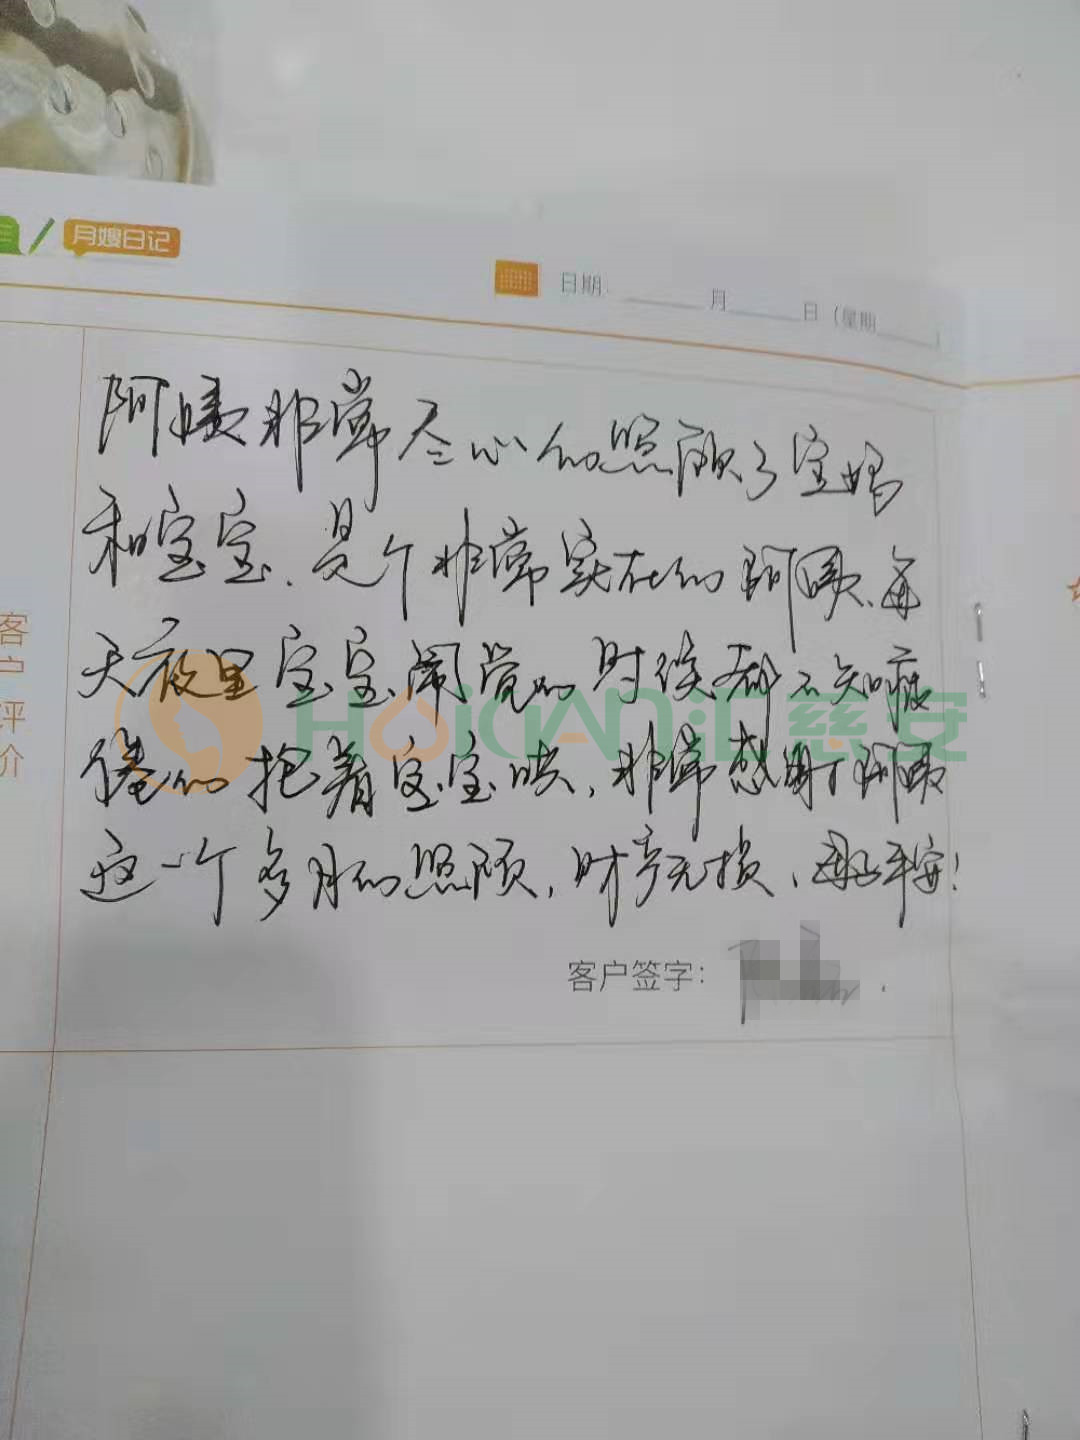 月嫂日记
日期: 月 日 (星期 )
客户评价
阿姨非常尽心的照顾了宝妈
和宝宝、是个非常实在的阿姨、每
天夜里宝宝闹觉的时候都不知疲
倦的抱着宝宝哄,非常感谢阿姨
这一个多月的照顾,财产无损、平安!
HUICIAN汇慈安
客户签字: